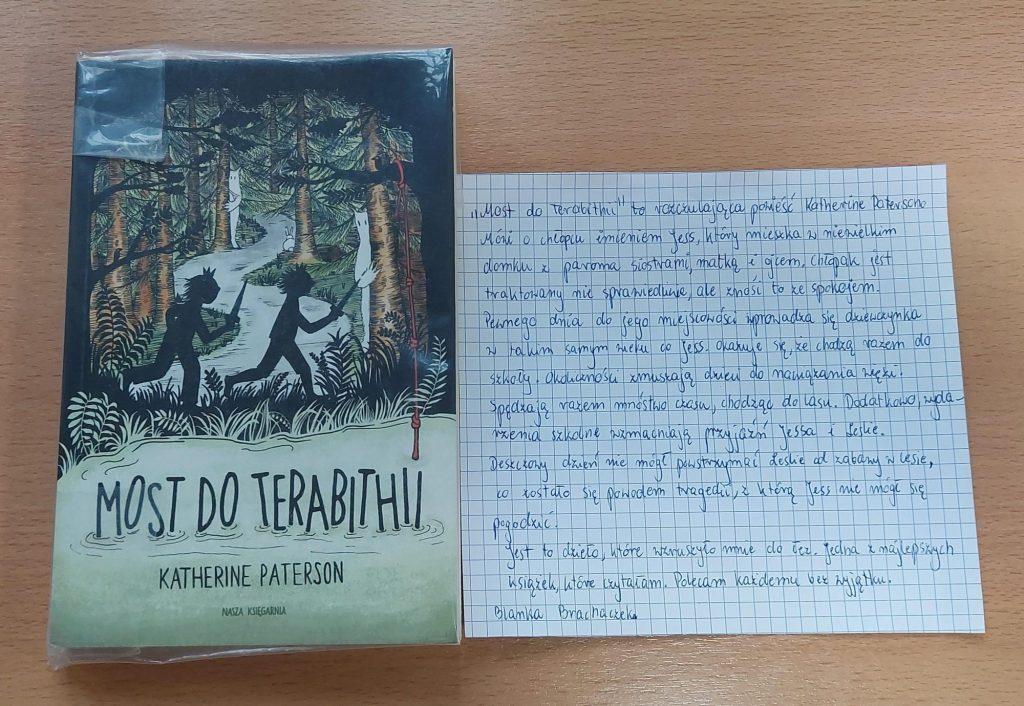 MOST DO TERABITHII
KATHERINE PATERSON
NASZA KSIĘGARNIA
„Most do Terabithii" to rozczulająca powieść Katherine Paterson.
Mówi o chłopcu imieniem Jess, który mieszka w niewielkim
domku z paroma siostrami, matką i ojcem. Chłopak jest
traktowany nie sprawiedliwie, ale znosi to ze spokojem.
Pewnego dnia do jego miejscowości wprowadza się dziewczynka
w takim samym wieku co Jess. Okazuje się, że chodzą razem do
szkoły. Okoliczności zmuszają dzieci do nawiązania więzi.
Spędzają razem mnóstwo czasu, chodząc do lasu. Dodatkowo, wyda-
rzenia szkolne wzmacniają przyjaźń Jessa i Leslie.
Deszczowy dzień nie mógł powstrzymać Leslie od zabawy w lesie,
co zostało się powodem tragedii, z którą Jess nie mógł się
pogodzić.
Jest to dzieło, które wzruszyło mnie do łez. Jedna z najlepszych
książek, które czytałam. Polecam każdemu bez wyjątku.
Blanka Brachaczek